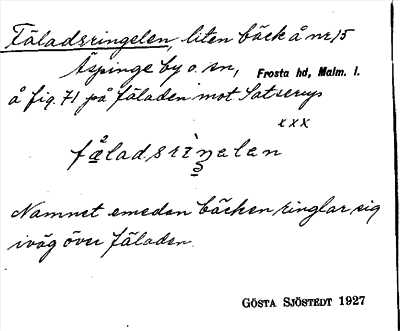 Fäladsringelen, liten bäck å nr 15
Äspinge by o. sn, Frosta hd, Malm. l.
å fig. 71 på fäladen mot Satserup
x x x
Namnet emedan bäcken ringlar sig
iväg över fäladen.
GÖSTA SJÖSTEDT 1927